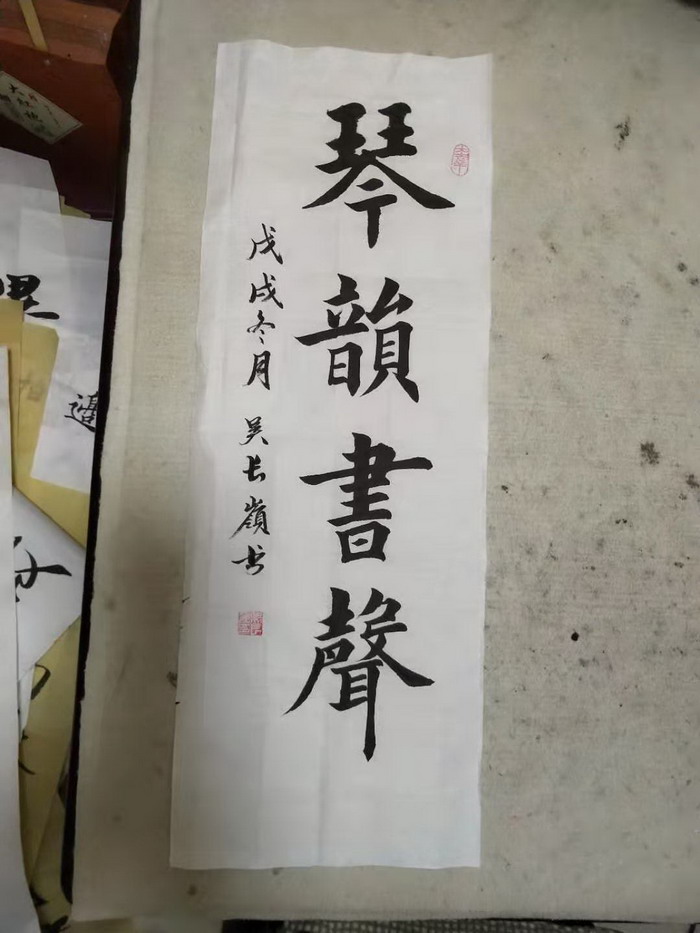 琴韻書聲
戊戌冬月 吴长嶺书